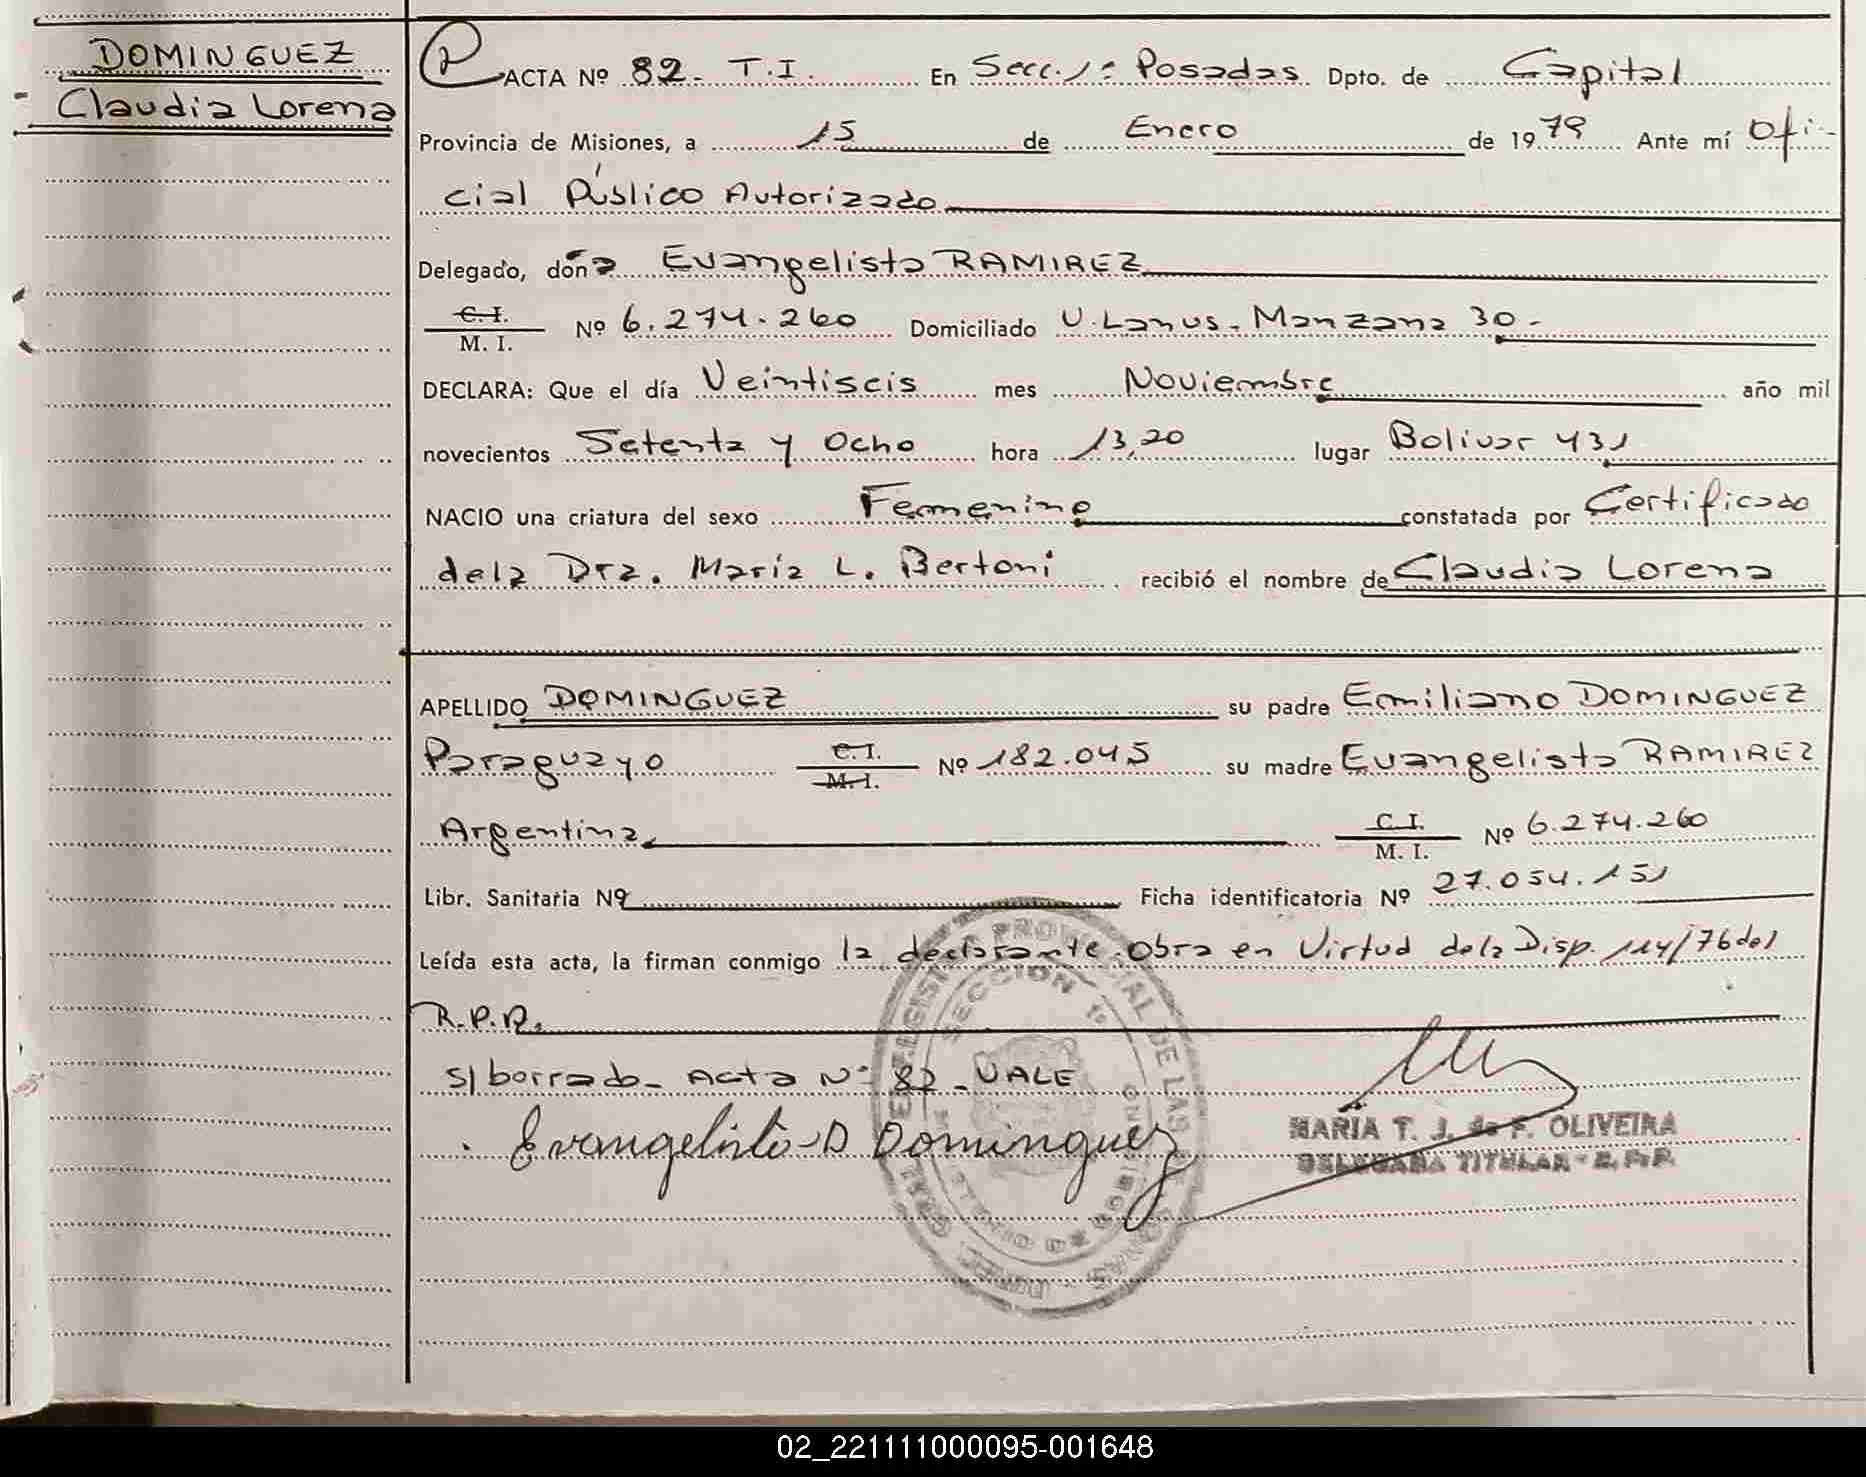 DOMINGUEZ
Claudia Lorena
ACTA Nº 82. T.I. En Secc. 1ª Posadas Dpto. de Capital
Provincia de Misiones, a 15 de Enero de 1979 Ante mí Ofi-
cial Público Autorizado
Delegado, doña Evangelista RAMIREZ
C.I.
M. I. Nº 6.274.260 Domiciliado U. Lanus. Manzana 30-
DECLARA: Que el día Veintiseis mes Noviembre año mil
novecientos Setenta y Ocho hora 13,20 lugar Bolivar 431
NACIO una criatura del sexo Femenino constatada por Certificado
dela Dra. María L. Bertoni recibió el nombre de Claudia Lorena
APELLIDO DOMINGUEZ su padre Emiliano DOMINGUEZ
Paraguayo C.I. M.I. Nº 182.045 su madre Evangelista RAMIREZ
Argentina C.I. M. I. Nº 6.274.260
Libr. Sanitaria Nº Ficha identificatoria Nº 27.054.151
Leída esta acta, la firman conmigo la declarante. Obra en Virtud dela Disp. 114/76 del
R.P.P.
S/borrado- Acta Nº 82 - VALE
Evangelista D Dominguez
MARIA T. J. de F. OLIVEIRA
DELEGADA TITULAR - R. P. P.
SECCION 1º
02_221111000095-001648